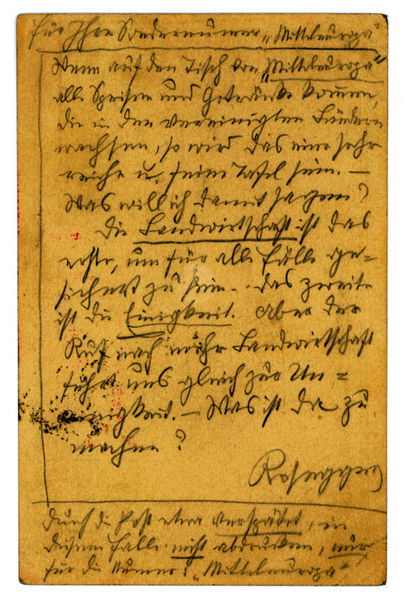 Für Ihre Sondernummer „Mitteleuropa“
Wenn auf den Tisch von „Mitteleuropa“
alle Speisen und Getränke kommen,
die in den vereinigten Ländern
wachsen, so wird das eine sehr
reiche u. feine Tafel sein. –
Was will ich damit sagen?
Die Landwirtschaft ist das
erste, um für alle Fälle ge-
sichert zu sein. Das zweite
ist die Einigkeit. Aber der
Ruf nach mehr Landwirtschaft
führt uns gleich zur Un-
einigkeit. – Was ist da zu
machen?
Rosegger
durch die Post etwa verspätet, in
diesem Falle nicht abdrucken, nur
für die Nummer: „Mitteleuropa“